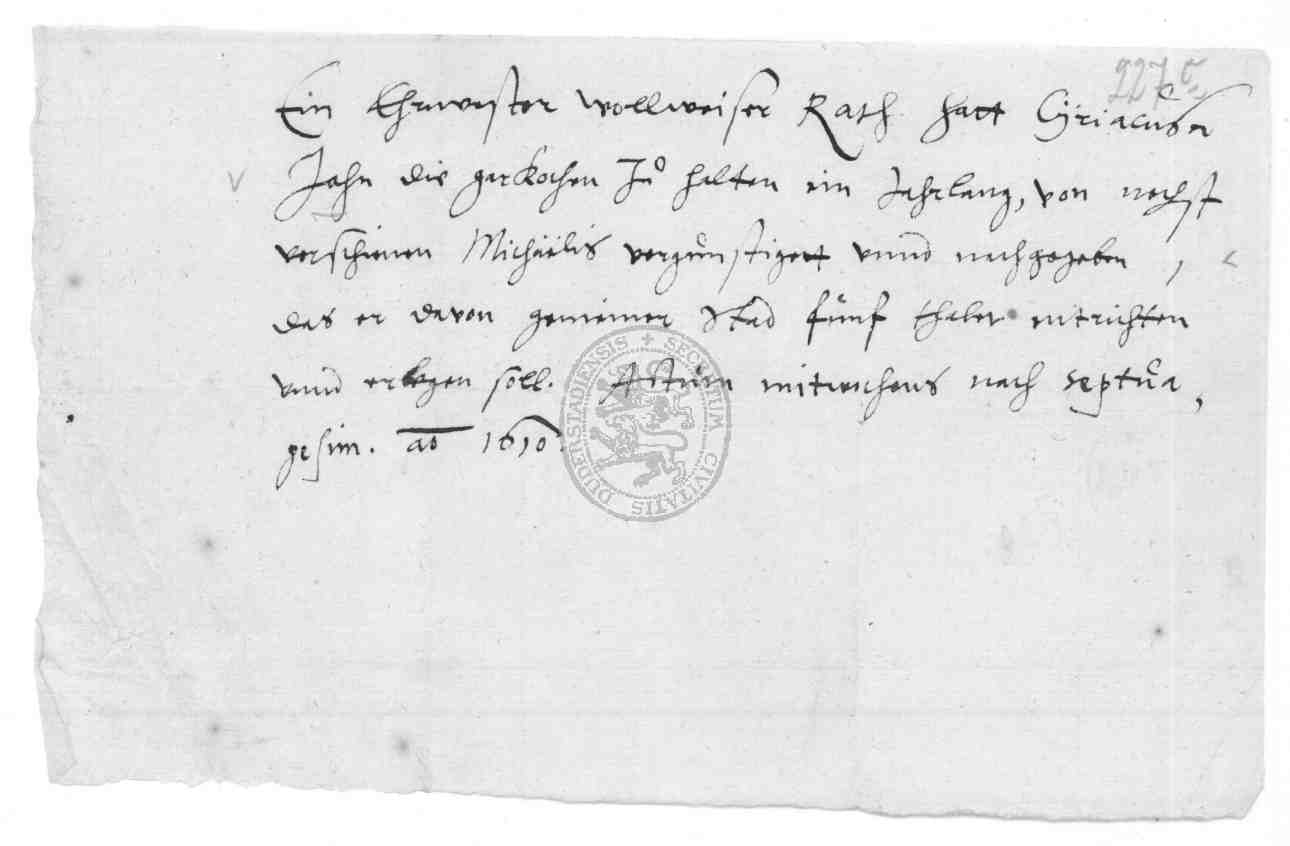 227c
Ein Ehrnvester wollweiser Rath hatt Cyriacusn
Jahn die garkochen Zu halten ein Jahrlang, von nechst
verschienen Michäelis vergünstiget vnnd nachgegeben,
das er davon gemeiner Stad fünf thaler entrichten
vnnd erlegen soll. Actum mitwochens nach septua,
gesim. ao 1610
SECRETUM CIVITATIS DUDERSTADIENSIS